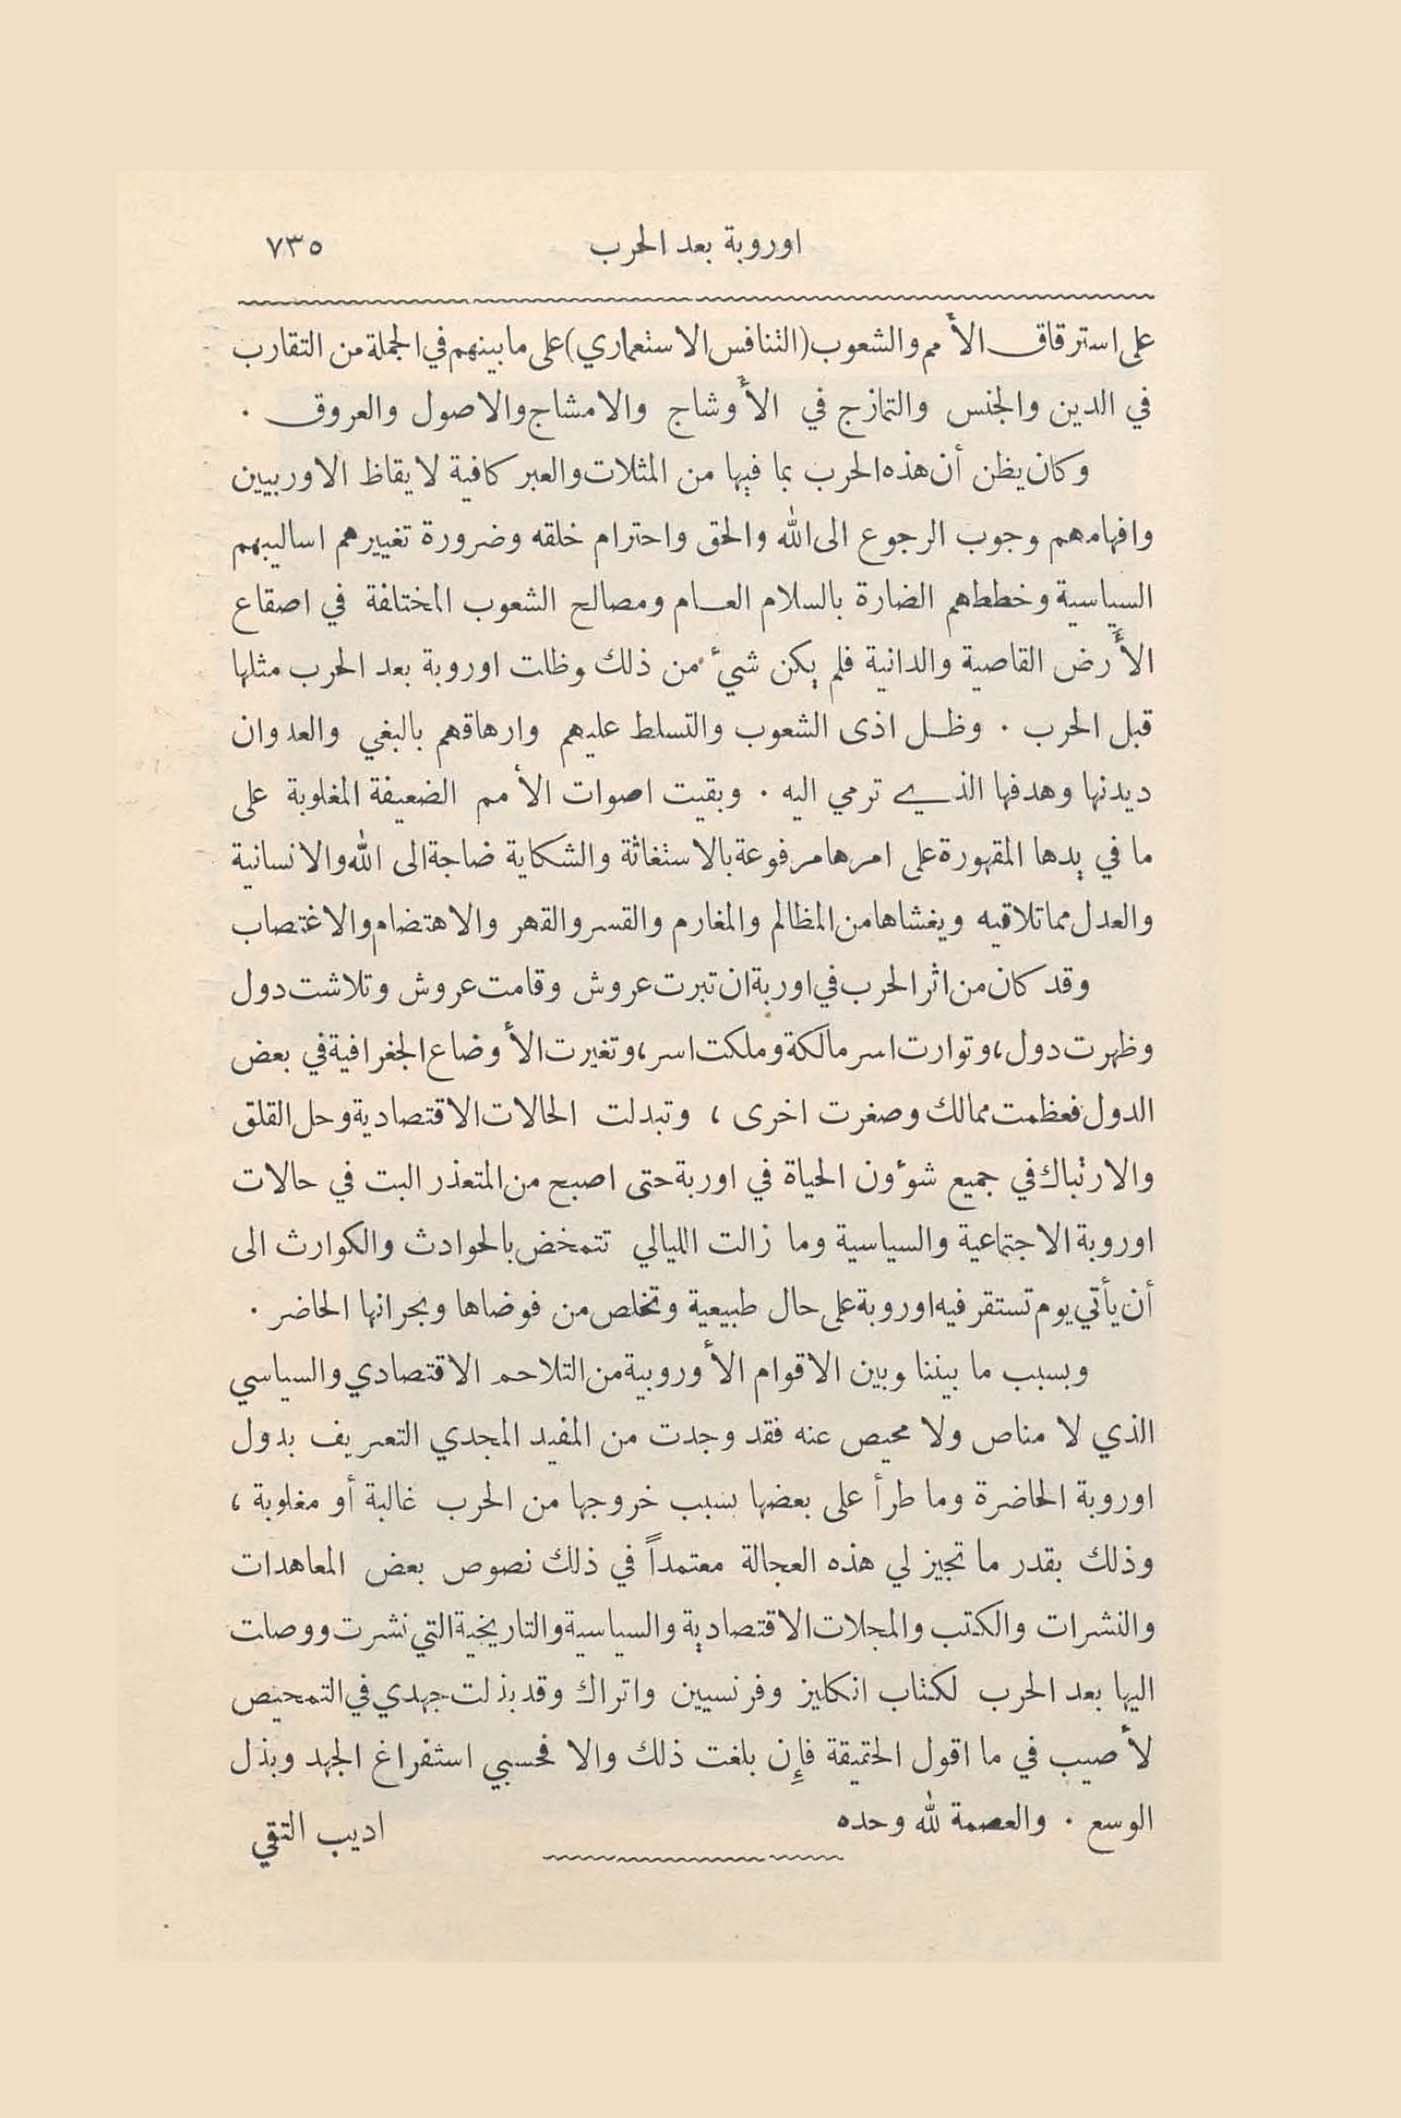 اوروبة بعد الحرب ٧٣٥
على استرقاق الأمم والشعوب (التنافس الاستعماري) على ما بينهم في الجملة من التقارب
في الدين والجنس والتمازج في الأوشاج والامشاج والاصول والعروق .
وكان يظن أن هذه الحرب بما فيها من المثلات والعبر كافية لايقاظ الاوربيين
وافهامهم وجوب الرجوع الى الله والحق واحترام خلقه وضرورة تغييرهم اساليبهم
السياسية وخططهم الضارة بالسلام العام ومصالح الشعوب المختلفة في اصقاع
الأرض القاصية والدانية فلم يكن شيء من ذلك وظلت اوروبة بعد الحرب مثلها
قبل الحرب . وظل اذى الشعوب والتسلط عليهم وارهاقهم بالبغي والعدوان
ديدنها وهدفها الذي ترمي اليه . وبقيت اصوات الأمم الضعيفة المغلوبة على
ما في يدها المقهورة على امرها مرفوعة بالاستغاثة والشكاية ضاجة الى الله والانسانية
والعدل مما تلاقيه ويغشاها من المظالم والمغارم والقسر والقهر والاهتضام والاغتصاب
وقد كان من اثر الحرب في اوربة ان تبرت عروش وقامت عروش وتلاشت دول
وظهرت دول، وتوارت اسر مالكة وملكت اسر، وتغيرت الأوضاع الجغرافية في بعض
الدول فعظمت ممالك وصغرت اخرى ، وتبدلت الحالات الاقتصادية وحل القلق
والارتباك في جميع شؤون الحياة في اوربة حتى اصبح من المتعذر البت في حالات
اوروبة الاجتماعية والسياسية وما زالت الليالي تتمخض بالحوادث والكوارث الى
أن يأتي يوم تستقر فيه اوروبة على حال طبيعية وتخلص من فوضاها وبحرانها الحاضر .
وبسبب ما بيننا وبين الاقوام الأوروبية من التلاحم الاقتصادي والسياسي
الذي لا مناص ولا محيص عنه فقد وجدت من المفيد المجدي التعريف بدول
اوروبة الحاضرة وما طرأ على بعضها بسبب خروجها من الحرب غالبة أو مغلوبة ،
وذلك بقدر ما تجيز لي هذه العجالة معتمداً في ذلك نصوص بعض المعاهدات
والنشرات والكتب والمجلات الاقتصادية والسياسية والتاريخية التي نشرت ووصلت
اليها بعد الحرب لكتاب انكليز وفرنسيين واتراك وقد بذلت جهدي في التمحيص
لأصيب في ما اقول الحقيقة فإن بلغت ذلك والا فحسبي استفراغ الجهد وبذل
الوسع . والعصمة لله وحده اديب التقي